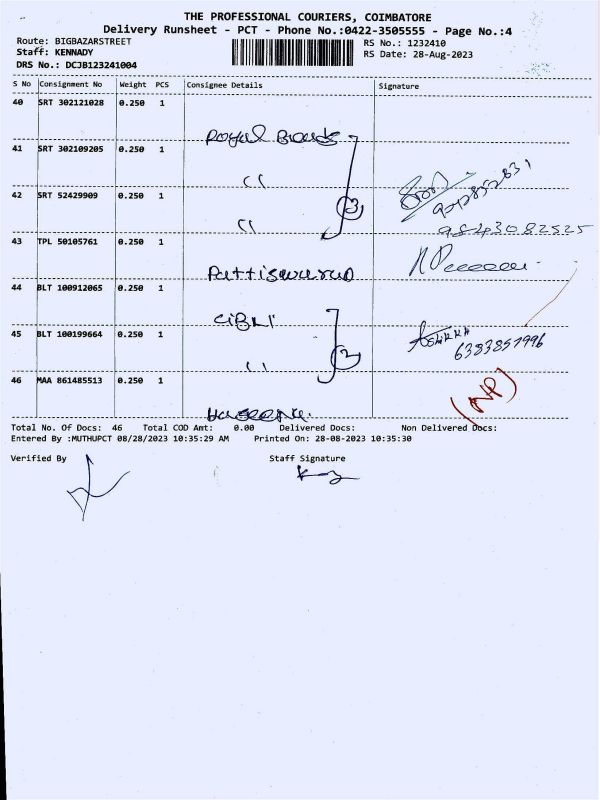 THE PROFESSIONAL COURIERS, COIMBATORE
Delivery Runsheet - PCT - Phone No.:0422-3505555 - Page No.:4
Route: BIGBAZARSTREET
RS No.: 1232410
Staff: KENNADY
RS Date: 28-Aug-2023
DRS No.: DCJB123241004
S No Consignment No Weight PCS Consignee Details Signature
40 SRT 302121028 0.250 1
Royal Brands
41 SRT 302109205 0.250 1
"
42 SRT 52429909 0.250 1
" 3
9843082525
43 TPL 50105761 0.250 1
44 BLT 100912065 0.250 1
45 BLT 100199664 0.250 1
" 2
6383851996
46 MAA 861485513 0.250 1
(NP)
Total No. Of Docs: 46 Total COD Amt: 0.00 Delivered Docs: Non Delivered Docs:
Entered By :MUTHUPCT 08/28/2023 10:35:29 AM Printed On: 28-08-2023 10:35:30
Verified By Staff Signature